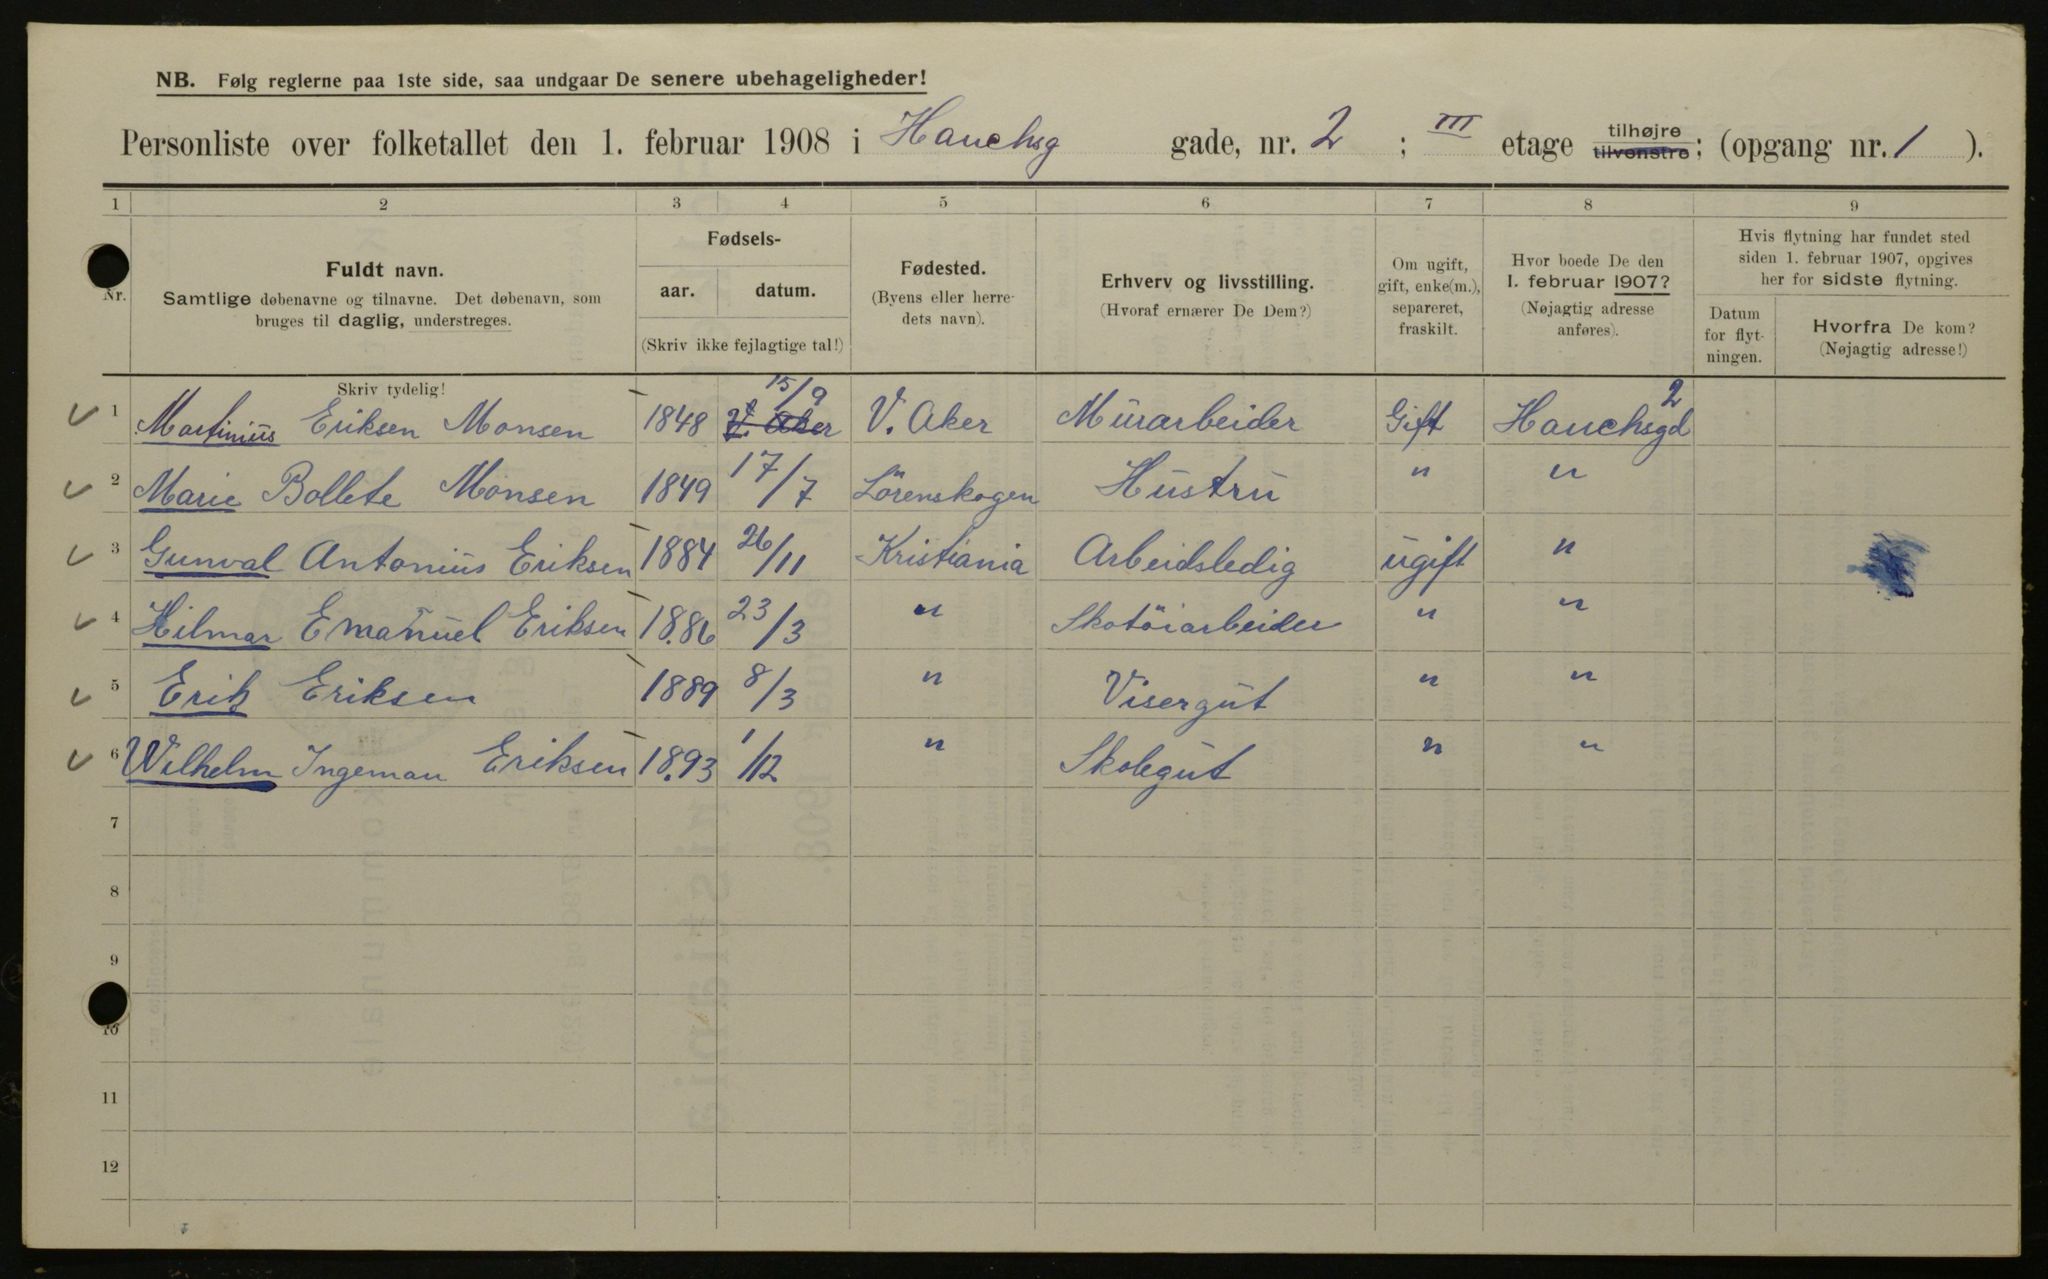 NB. Følg reglerne paa 1ste side, saa undgaar De senere ubehageligheder!
Personliste over folketallet den 1. februar 1908 i Hauchsg gade, nr. 2 ; III etage tilhøjre tilvenstre; (opgang nr. 1 ).
1 2 3 4 5 6 7 8 9
Nr.
Fuldt navn.
Samtlige døbenavne og tilnavne. Det døbenavn, som
bruges til daglig, understreges.
Skriv tydelig!
Fødsels-
aar. datum.
(Skriv ikke fejlagtige tal!)
Fødested.
(Byens eller herre-
dets navn).
Erhverv og livsstilling.
(Hvoraf ernærer De Dem?)
Om ugift,
gift, enke(m.),
separeret,
fraskilt.
Hvor boede De den
1. februar 1907?
(Nøjagtig adresse
anføres).
Hvis flytning har fundet sted
siden 1. februar 1907, opgives
her for sidste flytning.
Datum
for flyt-
ningen.
Hvorfra De kom?
(Nøjagtig adresse!)
1 Martinius Eriksen Monsen 1848 15/9 V. Aker V. Aker Murarbeider Gift Hauchsgd 2
2 Marie Bollete Monsen 1849 17/7 Lörenskogen Hustru " "
3 Gunval Antonius Eriksen 1884 26/11 Kristiania Arbeidsledig ugift "
4 Hilmar Emanuel Eriksen 1886 23/3 " Skotöiarbeider " "
5 Erik Eriksen 1889 8/3 " Visergut " "
6 Wilhelm Ingeman Eriksen 1893 1/12 " Skolegut " "
7
8
9
10
11
12